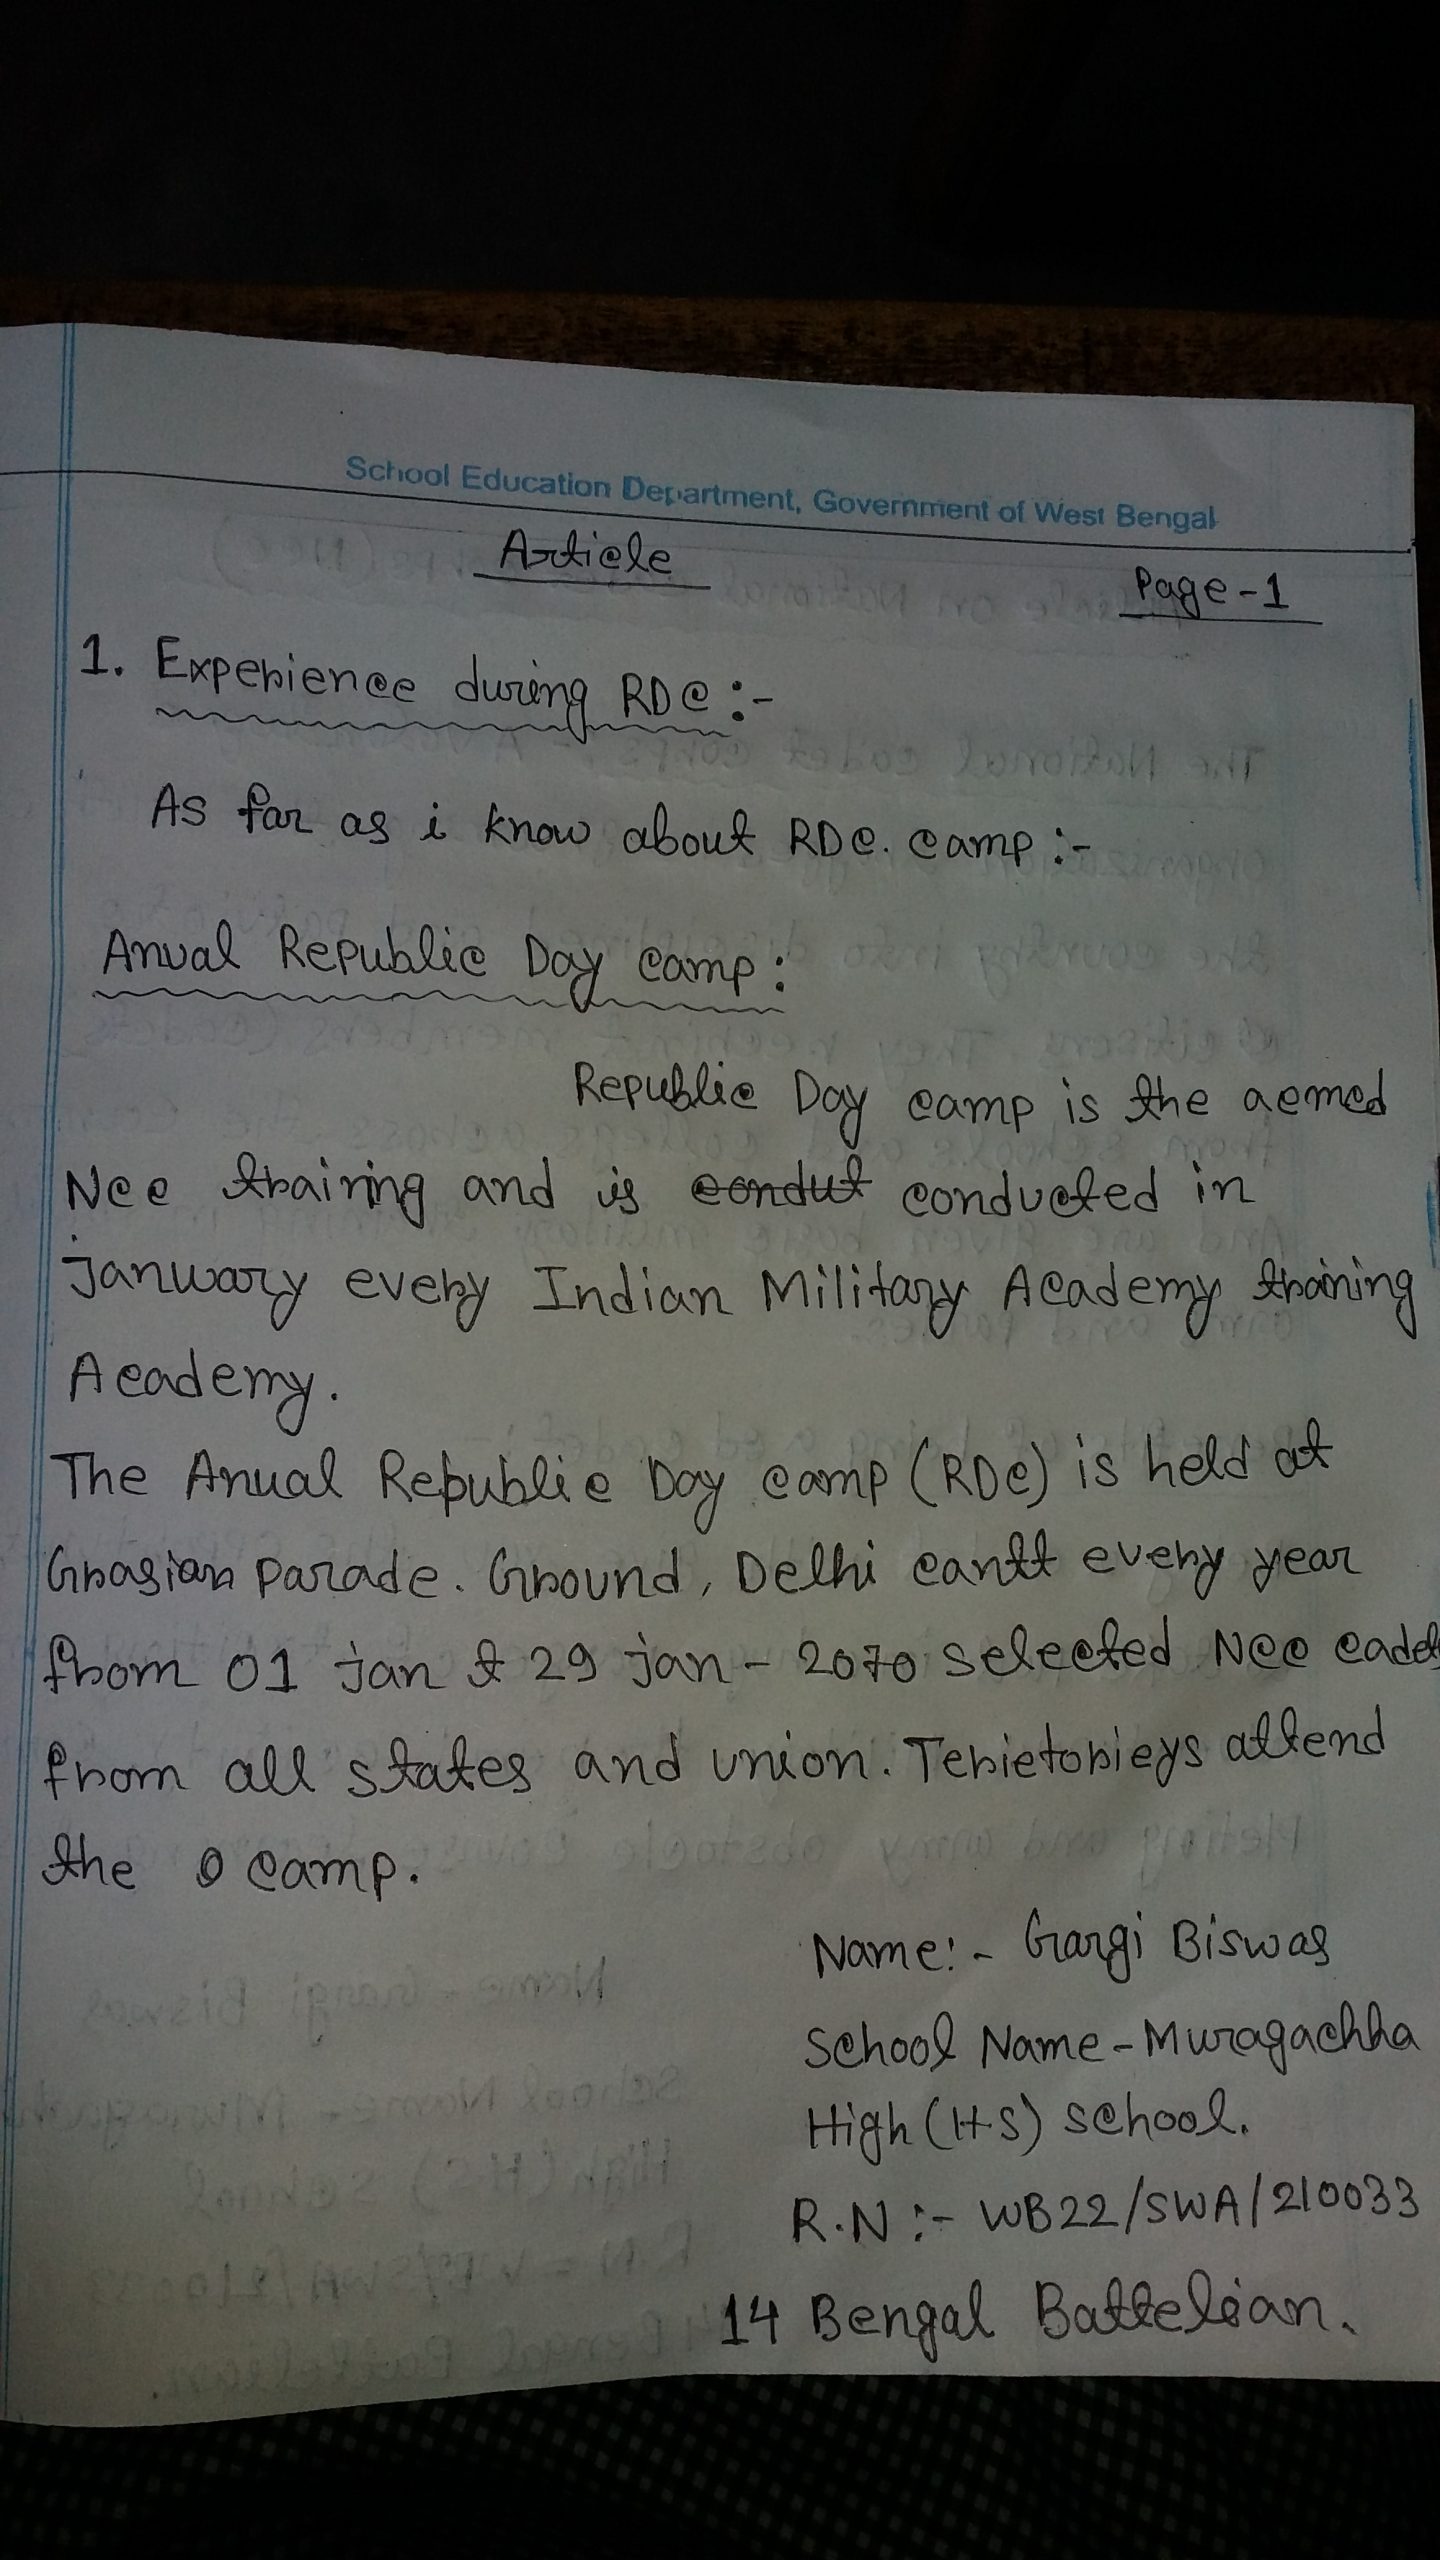 School Education Department, Government of West Bengal
Article
Page-1
1. Experience during RDC :-
As far as i know about RDC. camp :-
Anual Republic Day camp :
Republic Day camp is the acmed
Ncc training and is condut conducted in
january every Indian Military Academy training
Academy.
The Anual Republic Day camp (RDC) is held at
Grasian parade. Ground, Delhi cantt every year
from 01 jan & 29 jan - 2070 selected Ncc cadets
from all states and union. Terietorieys attend
the camp.
Name:- Gargi Biswas
School Name - Muragachha
High (H.S) school.
R.N :- WB22/SWA/210033
14 Bengal Battelian.